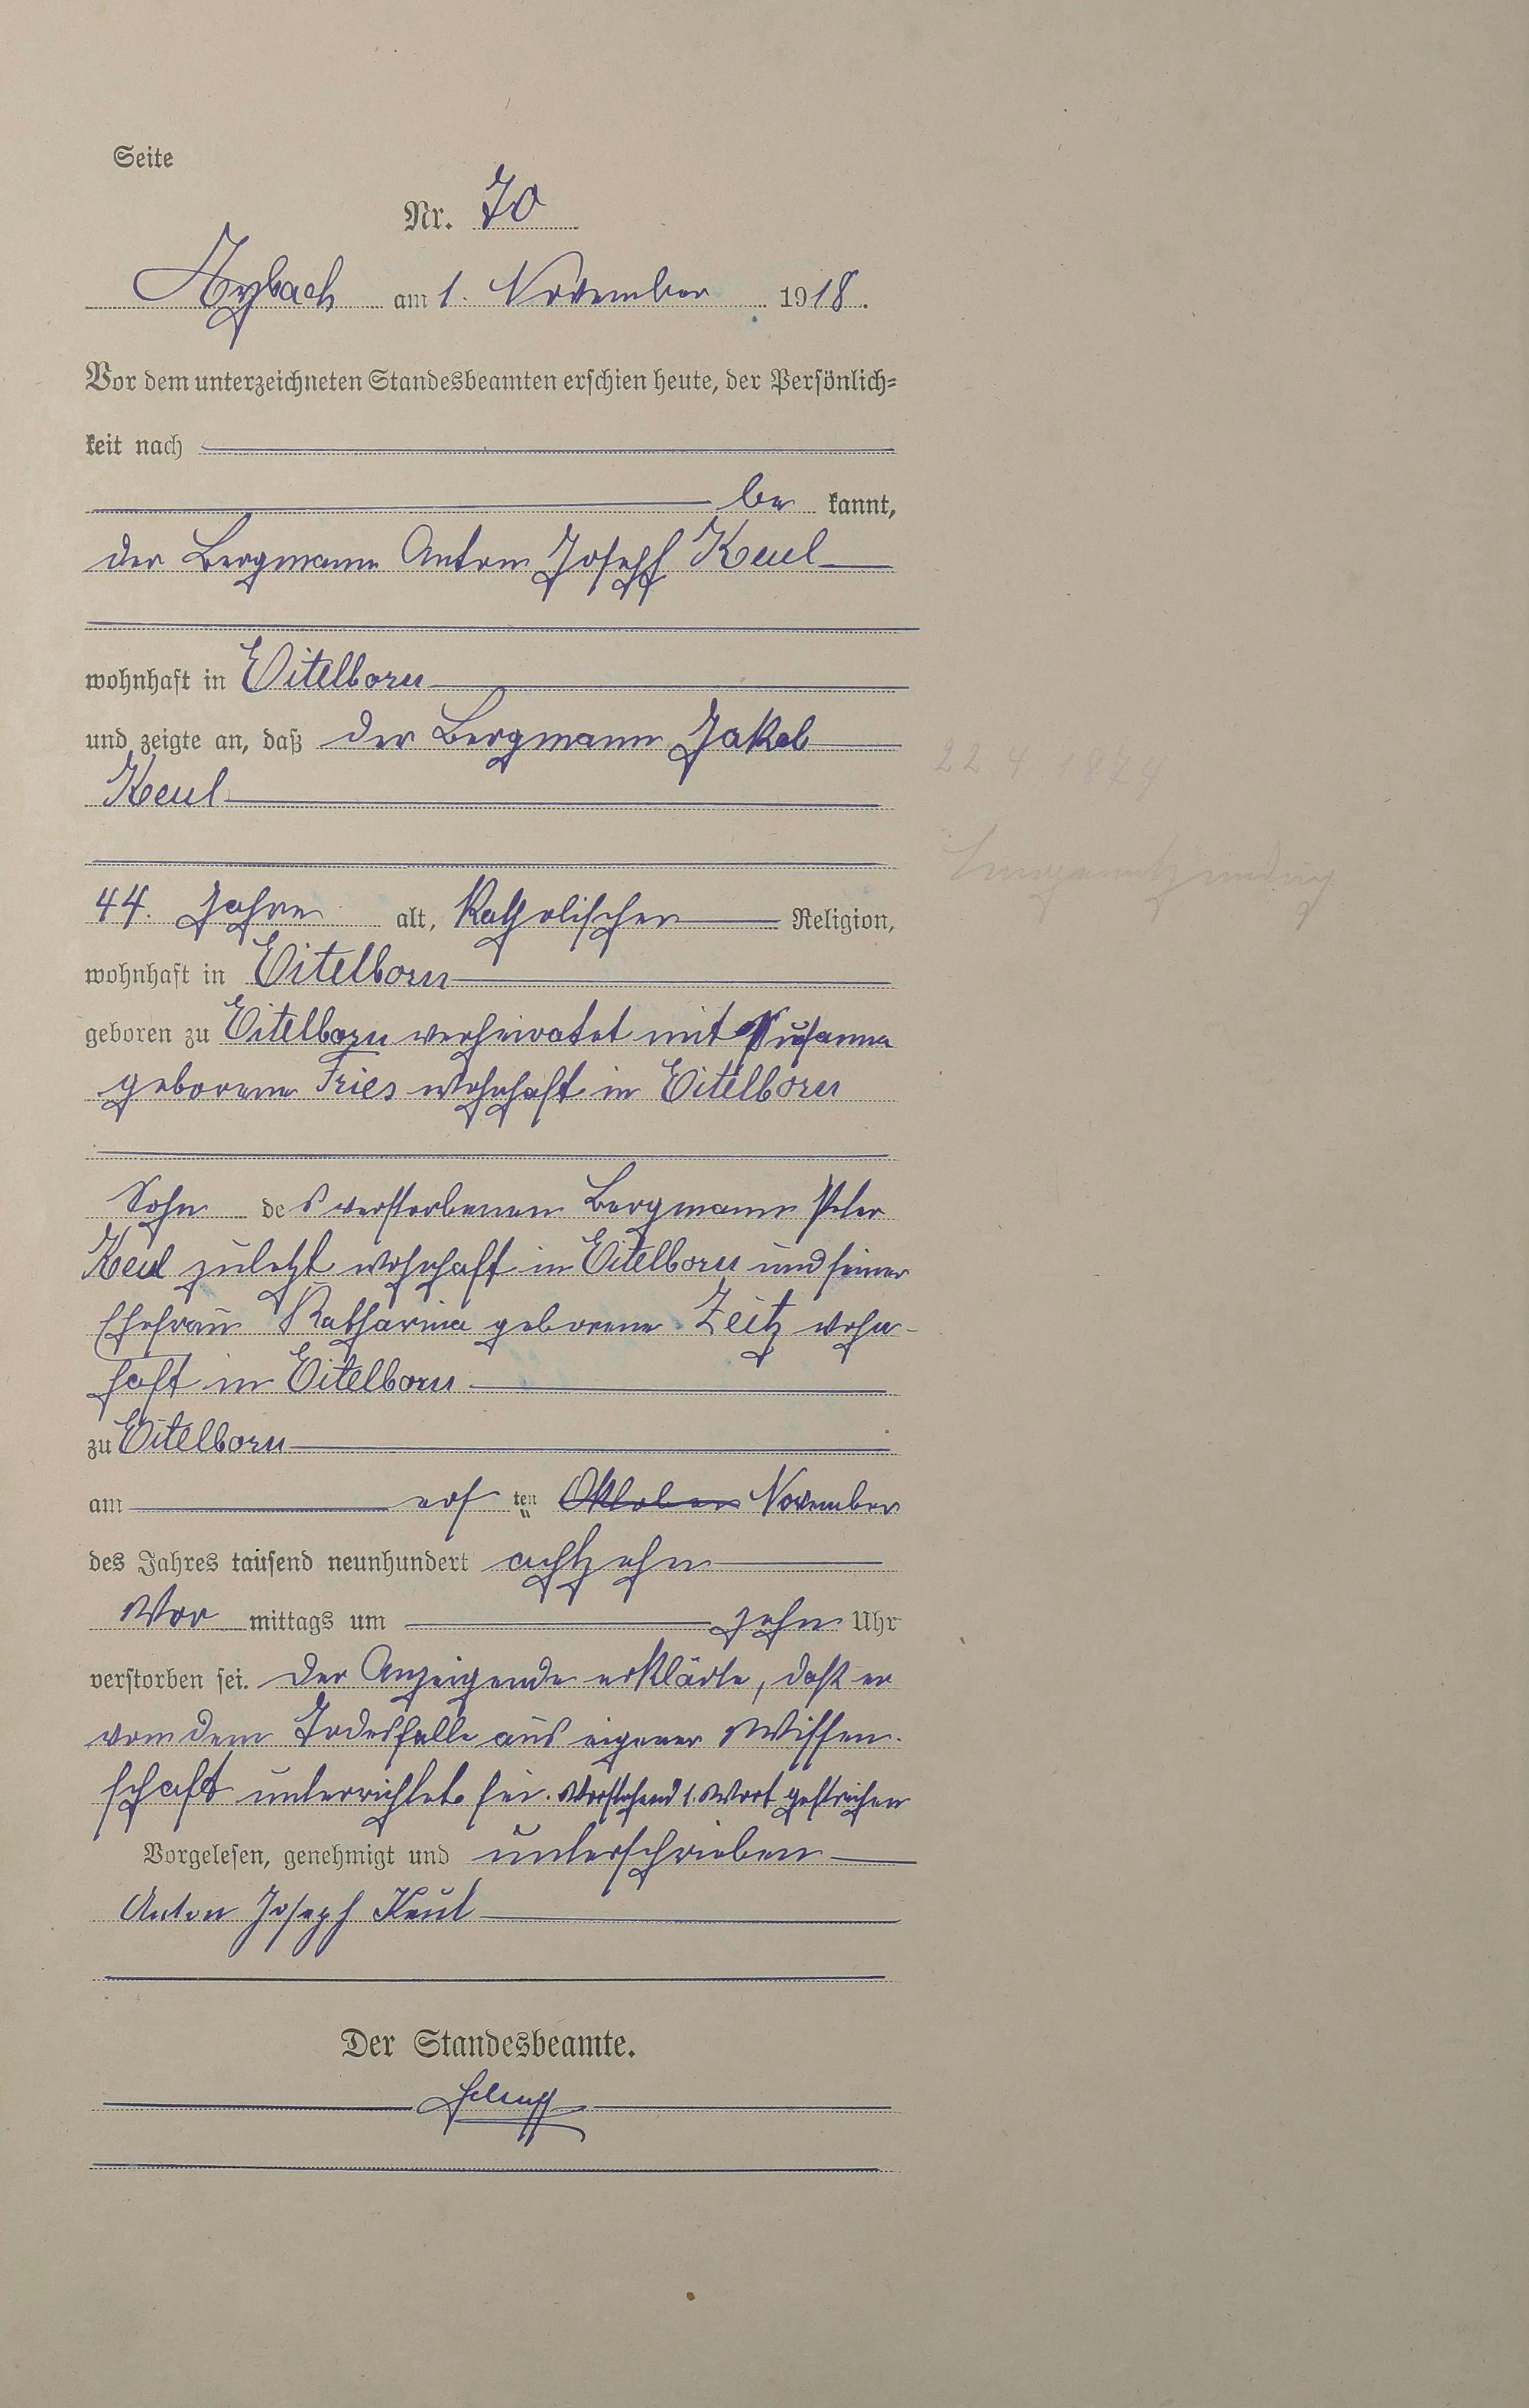 Seite
Nr. 70
Arzbach am 1. November 1918.
Vor dem unterzeichneten Standesbeamten erschien heute, der Persönlich=
keit nach
be kannt,
der Bergmann Anton Joseph Keul
wohnhaft in Eitelborn
und zeigte an, daß der Bergmann Jakob
Keul
22 4 1874
Lungenentzündung
44. Jahre alt, Katholischer Religion,
wohnhaft in Eitelborn
geboren zu Eitelborn verheiratet mit Susanna
geborene Fries wohnhaft in Eitelborn
Sohn des verstorbenen Bergmann Peter
Keul zuletzt wohnhaft in Eitelborn und seiner
Ehefrau Katharina geborene Zeitz wohn-
haft in Eitelborn
zu Eitelborn
am ersten Oktober November
des Jahres tausend neunhundert achtzehn
Vor mittags um zehn Uhr
verstorben sei. Der Anzeigende erklärte, daß er
von dem Todesfalle aus eigener Wissen-
schaft unterrichtet sei. Vorstehend 1. Wort gestrichen
Vorgelesen, genehmigt und unterschrieben
Anton Joseph Keul
Der Standesbeamte.